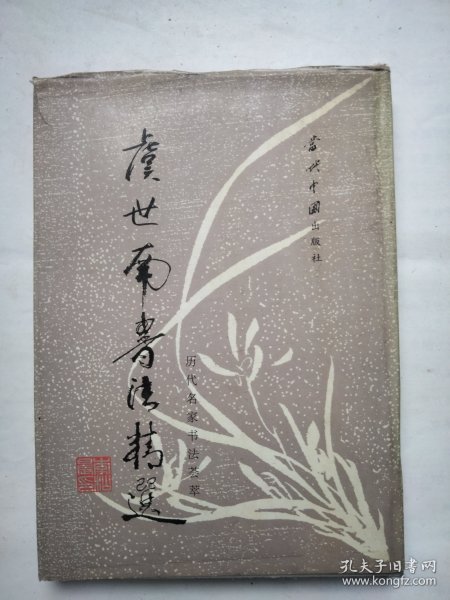 當代中國出版社
虞世南書法精選
历代名家书法荟萃
孔夫子旧书网
www.kongfz.com